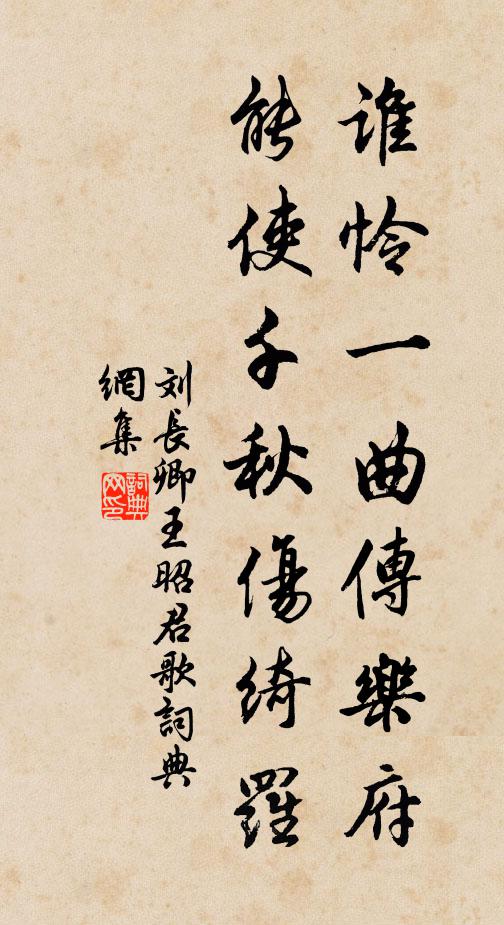 誰怜一曲傳樂府
能使千秋傷綺羅
刘長卿王昭君歌詞典
網集
詞典
网印